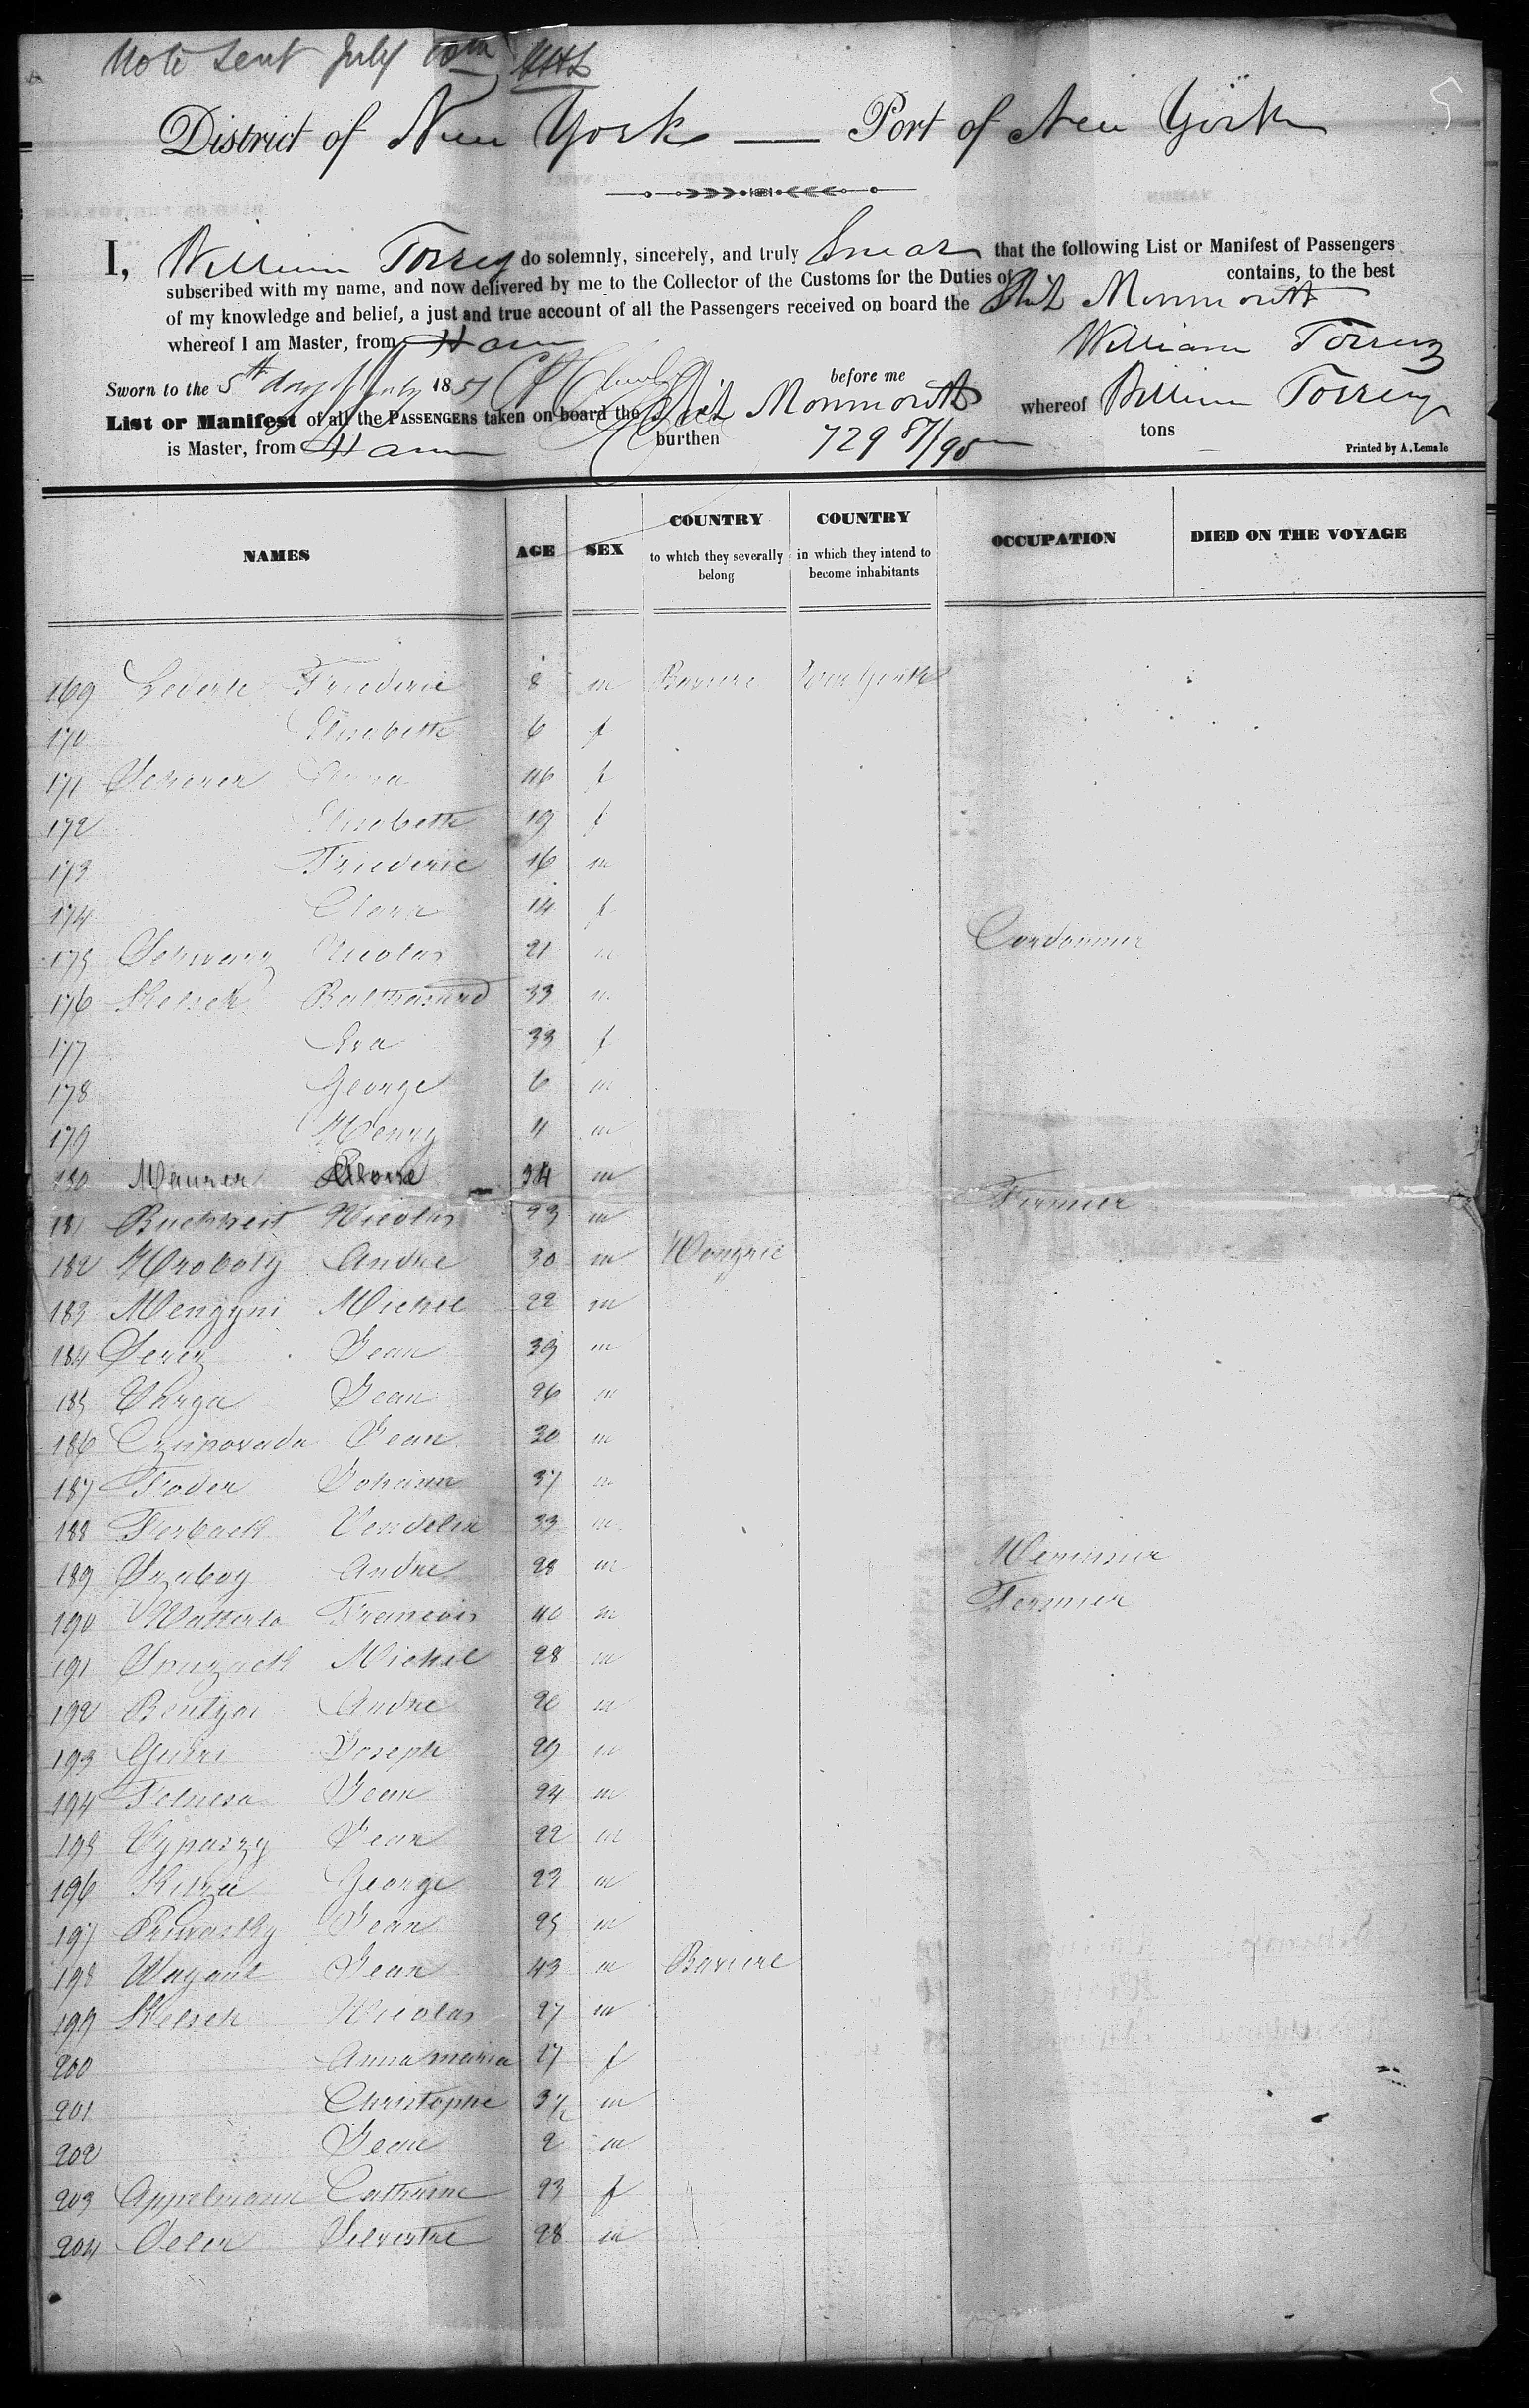 Note sent July 10th
District of New York — Port of New York
I, William Torrey do solemnly, sincerely, and truly Swear that the following List or Manifest of Passengers
subscribed with my name, and now delivered by me to the Collector of the Customs for the Duties of contains, to the best
of my knowledge and belief, a just and true account of all the Passengers received on board the Ship Monmouth
whereof I am Master, from Havre
William Torrey
Sworn to the 5th day of July 1851 before me
List or Manifest of all the PASSENGERS taken on board the Ship Monmouth whereof William Torrey
is Master, from Havre burthen 729 87/95 tons
Printed by A. Lemale
NAMES AGE SEX COUNTRY to which they severally belong COUNTRY in which they intend to become inhabitants OCCUPATION DIED ON THE VOYAGE
169 Frederic 8 m Baviere New York
170 Elisabeth 6 f
171 Scherer Anna 46 f
172 Elisabeth 19 f
173 Friederic 16 m
174 Clara 14 f
175 Schwarz Nicolas 21 m Cordonnier
176 Kelsch Balthasard 33 m
177 Eva 33 f
178 George 6 m
179 Henry 4 m
180 Maurer Pierre 34 m
181 Buchheit Nicolas 23 m Fermier
182 Hroboty Andre 30 m Hongrie
183 Mengyni Michel 22 m
184 Jean 39 m
185 Varga Jean 26 m
186 Jean 30 m
187 Foder Johann 37 m
188 Ferbach Vendelin 33 m
189 Szaboy Andre 28 m Menuisier
190 Francois 40 m Fermier
191 Michel 28 m
192 Andre 20 m
193 Joseph 29 m
194 Jean 24 m
195 Jean 22 m
196 George 23 m
197 Jean 25 m
198 Wagant Jean 43 m Baviere
199 Kelsch Nicolas 27 m
200 Anna maria 27 f
201 Christophe 3 1/2 m
202 Jean 2 m
203 Appelmann Catharine 23 f
204 Oeler Silvestre 28 m